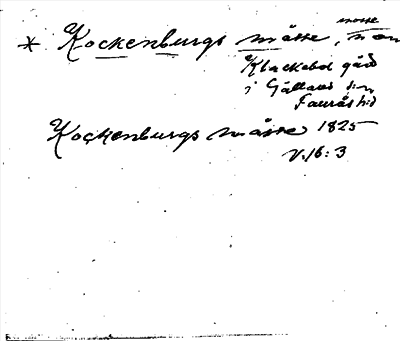 mosse
* Kockenburgs måsse, n om
Klackebol gård
i Gällared sn
Faurås hd
Kockenburgs måsse 1825
V. 16: 3